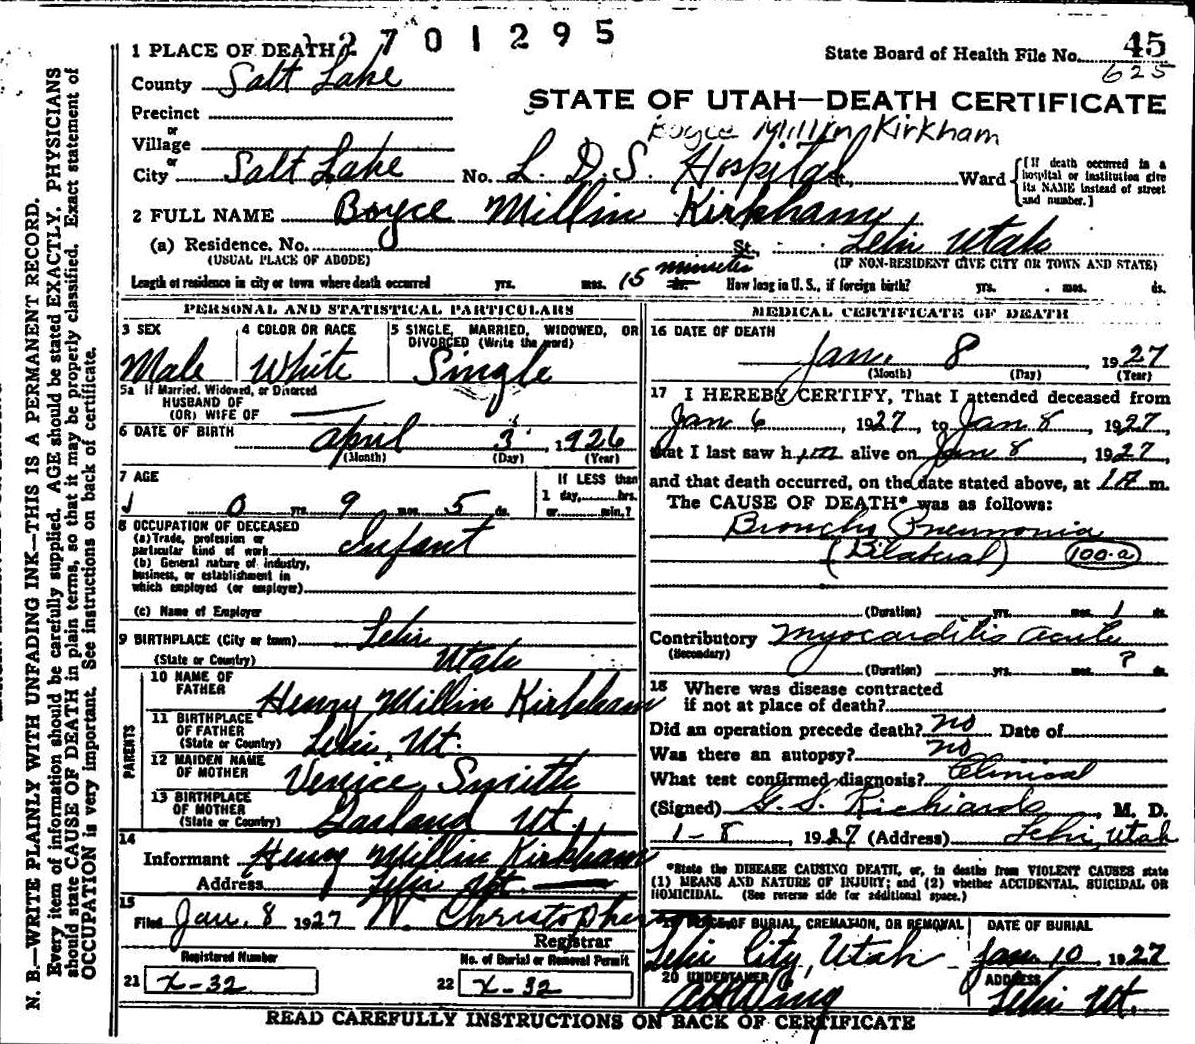 2701295
1 PLACE OF DEATH
State Board of Health File No. 45
625
County Salt Lake
STATE OF UTAH—DEATH CERTIFICATE
Precinct
Boyce Millin Kirkham
or
Village
or
City Salt Lake No. L. D. S. Hospital St., Ward
[If death occurred in a hospital or institution give its NAME instead of street and number.]
2 FULL NAME Boyce Millin Kirkham
(a) Residence. No. St. Lehi Utah
(USUAL PLACE OF ABODE) (IF NON-RESIDENT GIVE CITY OR TOWN AND STATE)
Length of residence in city or town where death occurred yrs. mos. 15 minutes ds. How long in U. S., if foreign birth? yrs. mos. ds.
PERSONAL AND STATISTICAL PARTICULARS
3 SEX 4 COLOR OR RACE 5 SINGLE, MARRIED, WIDOWED, OR
DIVORCED (Write the word)
Male White Single
5a If Married, Widowed, or Divorced
HUSBAND OF
(OR) WIFE OF
6 DATE OF BIRTH April 3 1926
(Month) (Day) (Year)
7 AGE If LESS than
1 day, hrs.
0 yrs. 9 mos. 5 ds. or min.?
8 OCCUPATION OF DECEASED
(a) Trade, profession or
particular kind of work Infant
(b) General nature of industry,
business, or establishment in
which employed (or employer)
(c) Name of Employer
9 BIRTHPLACE (City or town) Lehi
(State or Country) Utah
PARENTS
10 NAME OF
FATHER Henry Millin Kirkham
11 BIRTHPLACE
OF FATHER
(State or Country) Lehi, Ut.
12 MAIDEN NAME
OF MOTHER Venice Smith
13 BIRTHPLACE
OF MOTHER
(State or Country) Garland Ut.
14
Informant Henry Millin Kirkham
Address Lehi Ut.
15
Filed Jan. 8 1927
Registrar
Registered Number No. of Burial or Removal Permit
21 X-32 22 X-32
MEDICAL CERTIFICATE OF DEATH
16 DATE OF DEATH
Jan. 8 1927
(Month) (Day) (Year)
17 I HEREBY CERTIFY, That I attended deceased from
Jan 6, 1927, to Jan 8, 1927,
that I last saw him alive on Jan 8, 1927,
and that death occurred, on the date stated above, at 1 A m.
The CAUSE OF DEATH* was as follows:
Broncho Pneumonia
(Bilateral) 100-a
(Duration) yrs. mos. 1 ds.
Contributory Myocarditis acute
(Secondary)
(Duration) yrs. mos. ? ds.
18 Where was disease contracted
if not at place of death?
Did an operation precede death? no Date of
Was there an autopsy? no
What test confirmed diagnosis? Clinical
(Signed) G. S. Richards, M. D.
1-8, 1927 (Address) Lehi, Utah
*State the DISEASE CAUSING DEATH, or, in deaths from VIOLENT CAUSES state
(1) MEANS AND NATURE OF INJURY; and (2) whether ACCIDENTAL, SUICIDAL OR
HOMICIDAL. (See reverse side for additional space.)
19 PLACE OF BURIAL, CREMATION, OR REMOVAL DATE OF BURIAL
Lehi City, Utah Jan 10 1927
20 UNDERTAKER ADDRESS
Wing Lehi Ut.
READ CAREFULLY INSTRUCTIONS ON BACK OF CERTIFICATE
N. B.—WRITE PLAINLY WITH UNFADING INK—THIS IS A PERMANENT RECORD.
Every item of information should be carefully supplied. AGE should be stated EXACTLY. PHYSICIANS
should state CAUSE OF DEATH in plain terms, so that it may be properly classified. Exact statement of
OCCUPATION is very important. See instructions on back of certificate.